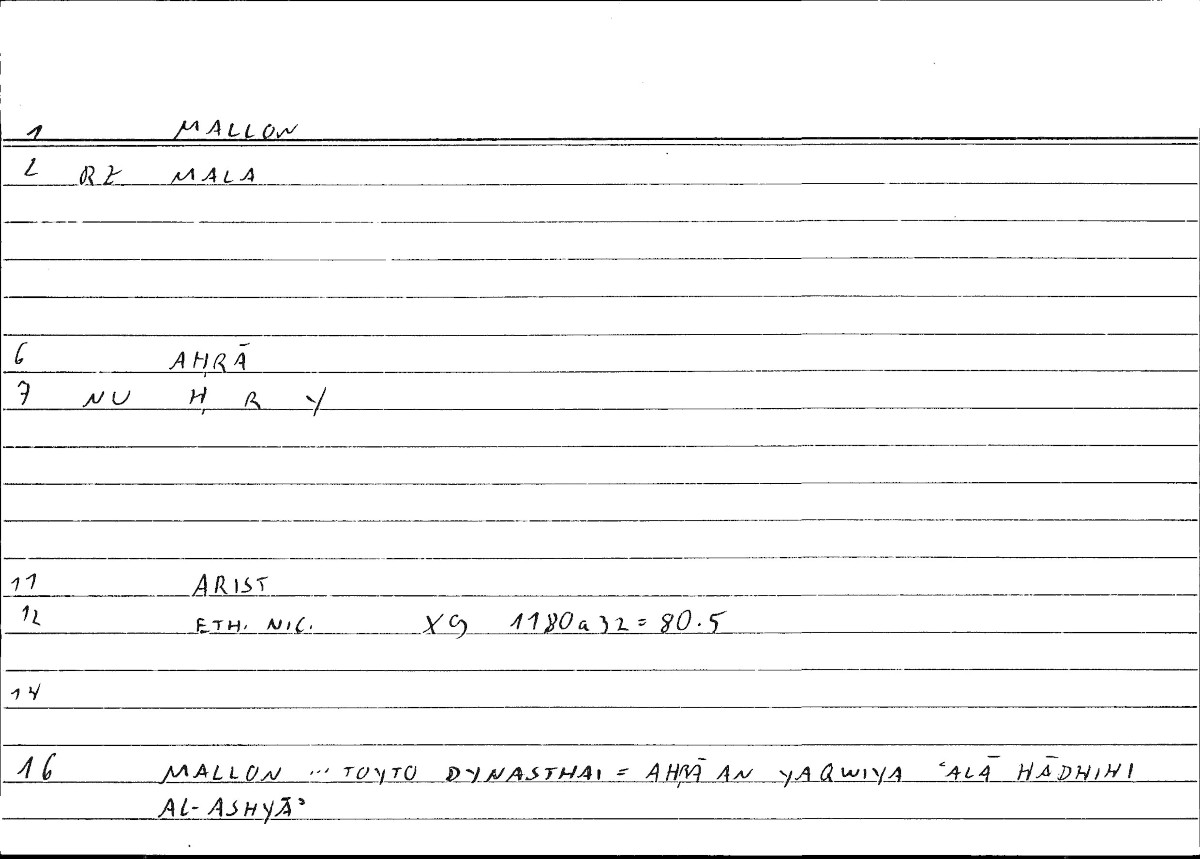 1 MALLON
2 RZ MALA
6 AḤRĀ
7 NU Ḥ R Y
11 ARIST
12 ETH. NIC. X9 1180a32=80.5
14
16 MALLON ... TOYTO DYNASTHAI = AḤRĀ AN YAQWIYA ʿALĀ HĀDHIHI
AL-ASHYĀʾ